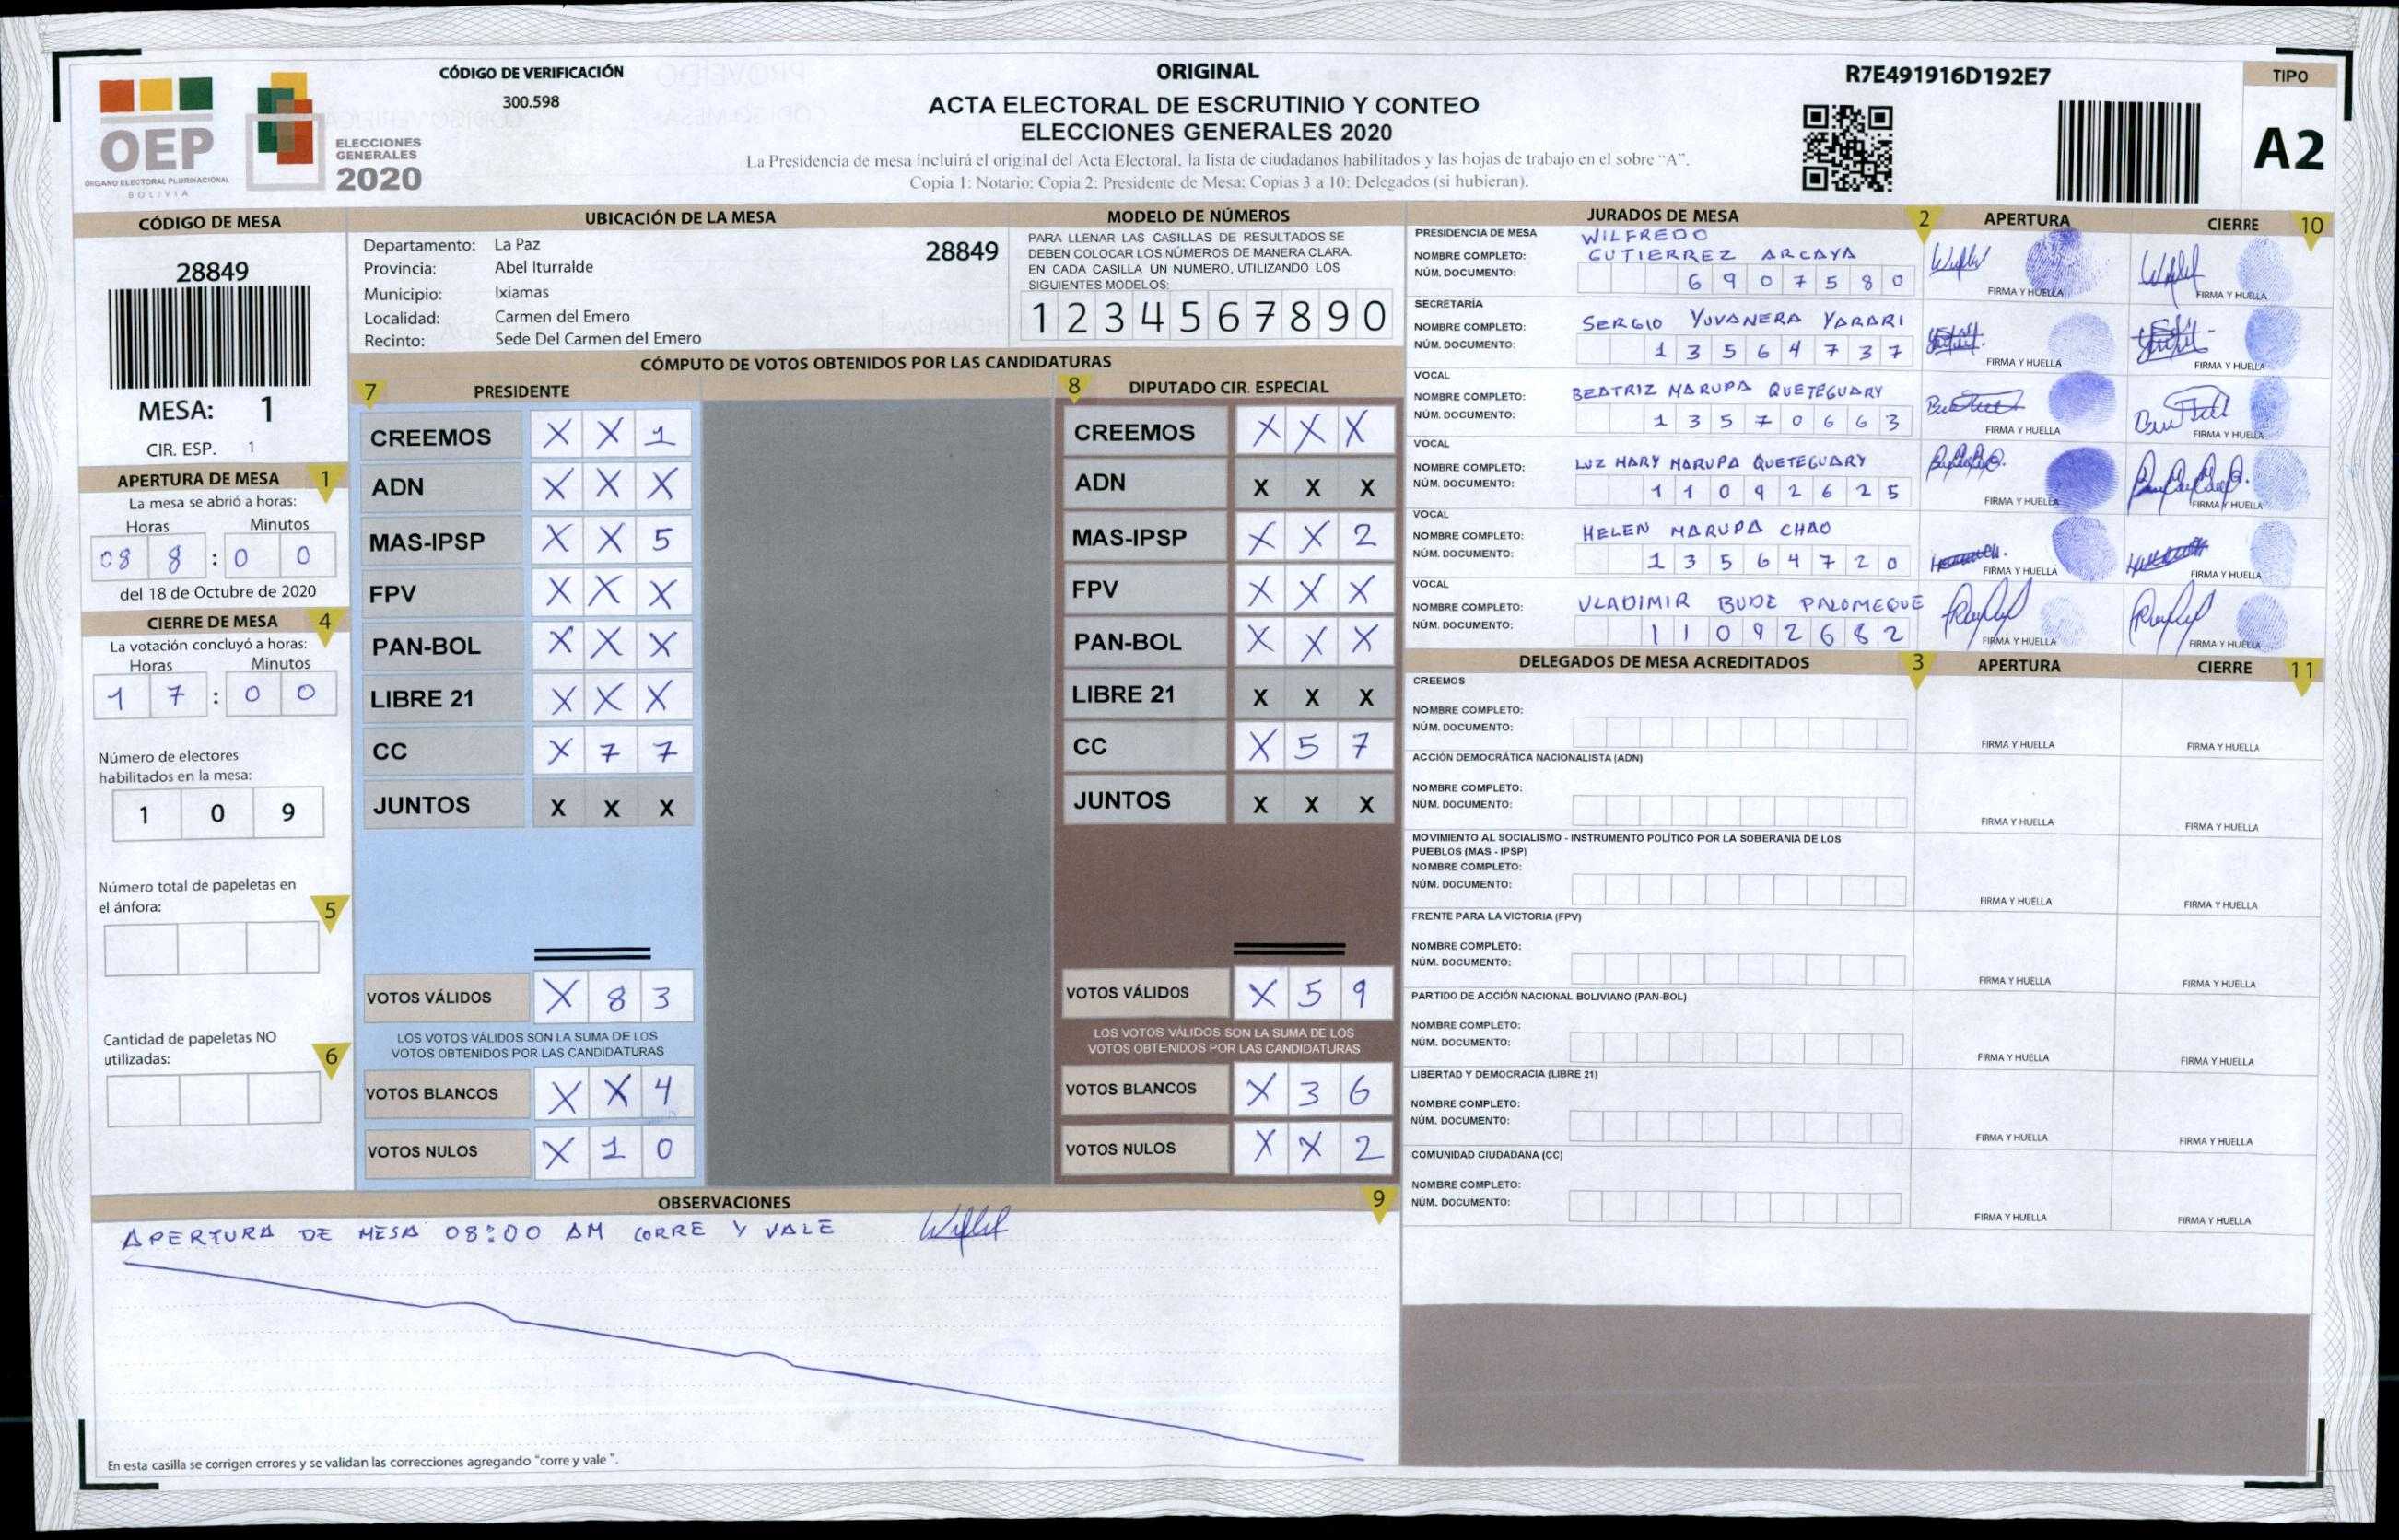 CÓDIGO DE VERIFICACIÓN
300.598
OEP
ÓRGANO ELECTORAL PLURINACIONAL
BOLIVIA
ELECCIONES
GENERALES
2020
ORIGINAL
ACTA ELECTORAL DE ESCRUTINIO Y CONTEO
ELECCIONES GENERALES 2020
La Presidencia de mesa incluirá el original del Acta Electoral, la lista de ciudadanos habilitados y las hojas de trabajo en el sobre “A”.
Copia 1: Notario; Copia 2: Presidente de Mesa; Copias 3 a 10: Delegados (si hubieran).
R7E491916D192E7
TIPO
A2
CÓDIGO DE MESA
28849
MESA: 1
CIR. ESP. 1
APERTURA DE MESA 1
La mesa se abrió a horas:
Horas Minutos
08 8 : 0 0
del 18 de Octubre de 2020
CIERRE DE MESA 4
La votación concluyó a horas:
Horas Minutos
1 7 : 0 0
Número de electores
habilitados en la mesa:
1 0 9
Número total de papeletas en
el ánfora:
5
Cantidad de papeletas NO
utilizadas:
6
UBICACIÓN DE LA MESA
Departamento: La Paz
28849
Provincia: Abel Iturralde
Municipio: Ixiamas
Localidad: Carmen del Emero
Recinto: Sede Del Carmen del Emero
MODELO DE NÚMEROS
PARA LLENAR LAS CASILLAS DE RESULTADOS SE
DEBEN COLOCAR LOS NÚMEROS DE MANERA CLARA.
EN CADA CASILLA UN NÚMERO, UTILIZANDO LOS
SIGUIENTES MODELOS:
1 2 3 4 5 6 7 8 9 0
CÓMPUTO DE VOTOS OBTENIDOS POR LAS CANDIDATURAS
7 PRESIDENTE
CREEMOS X X 1
ADN X X X
MAS-IPSP X X 5
FPV X X X
PAN-BOL X X X
LIBRE 21 X X X
CC X 7 7
JUNTOS X X X
VOTOS VÁLIDOS X 8 3
LOS VOTOS VÁLIDOS SON LA SUMA DE LOS
VOTOS OBTENIDOS POR LAS CANDIDATURAS
VOTOS BLANCOS X X 4
VOTOS NULOS X 1 0
8 DIPUTADO CIR. ESPECIAL
CREEMOS X X X
ADN X X X
MAS-IPSP X X 2
FPV X X X
PAN-BOL X X X
LIBRE 21 X X X
CC X 5 7
JUNTOS X X X
VOTOS VÁLIDOS X 5 9
LOS VOTOS VÁLIDOS SON LA SUMA DE LOS
VOTOS OBTENIDOS POR LAS CANDIDATURAS
VOTOS BLANCOS X 3 6
VOTOS NULOS X X 2
OBSERVACIONES 9
APERTURA DE MESA 08:00 AM CORRE Y VALE
En esta casilla se corrigen errores y se validan las correcciones agregando "corre y vale ".
JURADOS DE MESA 2 APERTURA CIERRE 10
PRESIDENCIA DE MESA WILFREDO
NOMBRE COMPLETO: GUTIERREZ ARCAYA
NÚM. DOCUMENTO: 6 9 0 7 5 8 0
FIRMA Y HUELLA FIRMA Y HUELLA
SECRETARÍA
NOMBRE COMPLETO: SERGIO YUVANERA YARARI
NÚM. DOCUMENTO: 1 3 5 6 4 7 3 7
FIRMA Y HUELLA FIRMA Y HUELLA
VOCAL
NOMBRE COMPLETO: BEATRIZ MARUPA QUETEGUARY
NÚM. DOCUMENTO: 1 3 5 7 0 6 6 3
FIRMA Y HUELLA FIRMA Y HUELLA
VOCAL
NOMBRE COMPLETO: LUZ MARY MARUPA QUETEGUARY
NÚM. DOCUMENTO: 1 1 0 9 2 6 2 5
FIRMA Y HUELLA FIRMA Y HUELLA
VOCAL
NOMBRE COMPLETO: HELEN MARUPA CHAO
NÚM. DOCUMENTO: 1 3 5 6 4 7 2 0
FIRMA Y HUELLA FIRMA Y HUELLA
VOCAL
NOMBRE COMPLETO: VLADIMIR BUDE PALOMEQUE
NÚM. DOCUMENTO: 1 1 0 9 2 6 8 2
FIRMA Y HUELLA FIRMA Y HUELLA
DELEGADOS DE MESA ACREDITADOS 3 APERTURA CIERRE 11
CREEMOS
NOMBRE COMPLETO:
NÚM. DOCUMENTO:
FIRMA Y HUELLA FIRMA Y HUELLA
ACCIÓN DEMOCRÁTICA NACIONALISTA (ADN)
NOMBRE COMPLETO:
NÚM. DOCUMENTO:
FIRMA Y HUELLA FIRMA Y HUELLA
MOVIMIENTO AL SOCIALISMO - INSTRUMENTO POLÍTICO POR LA SOBERANIA DE LOS
PUEBLOS (MAS - IPSP)
NOMBRE COMPLETO:
NÚM. DOCUMENTO:
FIRMA Y HUELLA FIRMA Y HUELLA
FRENTE PARA LA VICTORIA (FPV)
NOMBRE COMPLETO:
NÚM. DOCUMENTO:
FIRMA Y HUELLA FIRMA Y HUELLA
PARTIDO DE ACCIÓN NACIONAL BOLIVIANO (PAN-BOL)
NOMBRE COMPLETO:
NÚM. DOCUMENTO:
FIRMA Y HUELLA FIRMA Y HUELLA
LIBERTAD Y DEMOCRACIA (LIBRE 21)
NOMBRE COMPLETO:
NÚM. DOCUMENTO:
FIRMA Y HUELLA FIRMA Y HUELLA
COMUNIDAD CIUDADANA (CC)
NOMBRE COMPLETO:
NÚM. DOCUMENTO:
FIRMA Y HUELLA FIRMA Y HUELLA